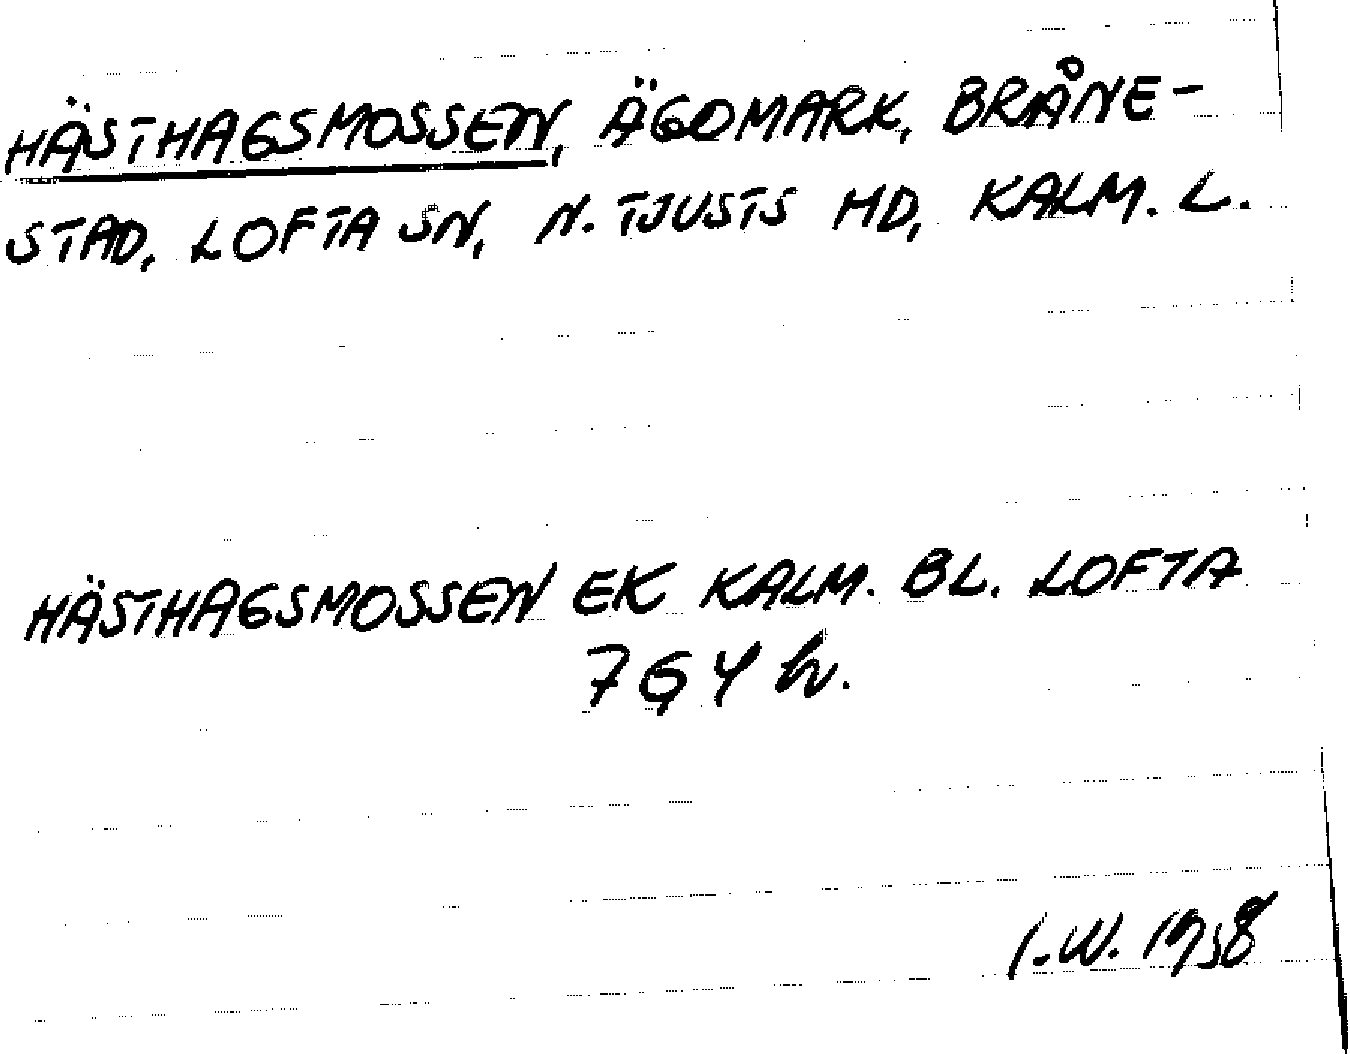 HÄSTHAGSMOSSEN, ÄGOMARK, BRÅNE-
STAD, LOFTA SN, N. TJUSTS HD, KALM. L.
HÄSTHAGSMOSSEN EK KALM. BL. LOFTA
764 hv.
I.W. 1958